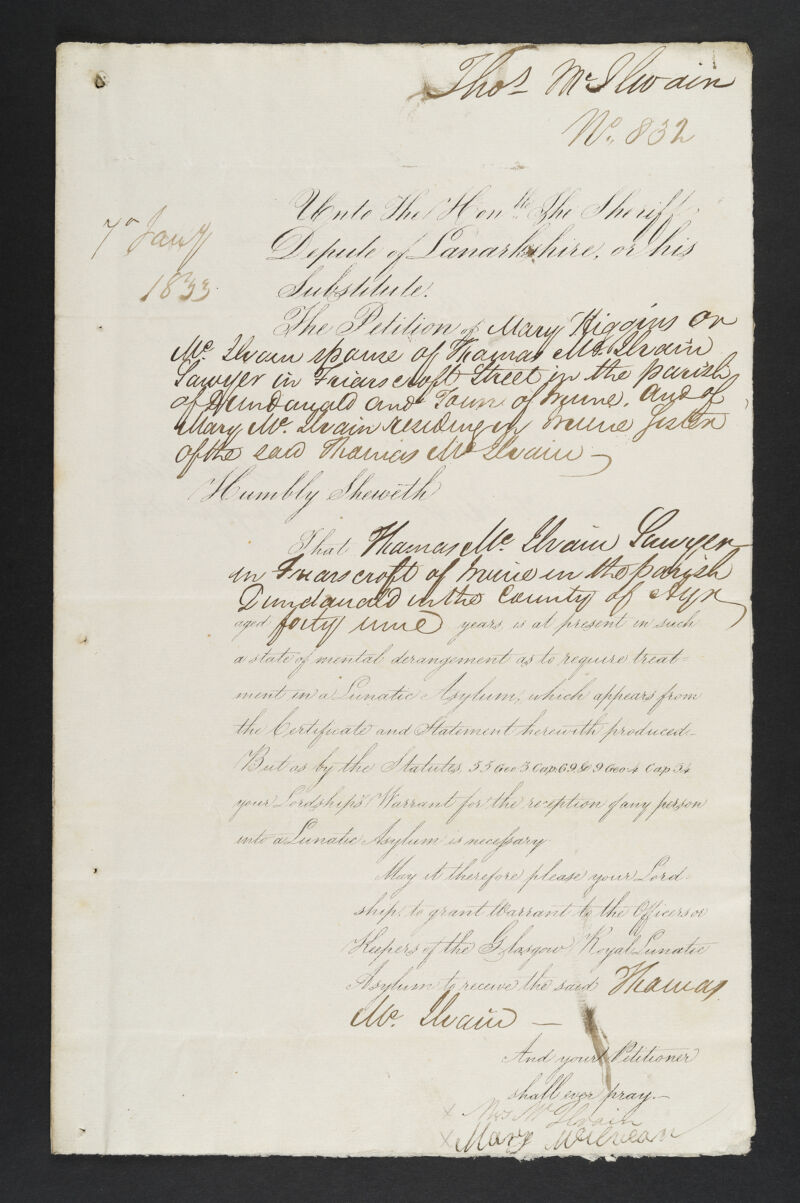 Thos. Mc Ilwain
No. 832
7th Jany
1833
Unto The Honble. The Sheriff
Depute of Lanarkshire, or his
Substitute.
The Petition of Mary Higgins or
Mc. Ilvain spouse of Thamas Mc Ilvain
Sawyer in Friarscroft Street in the parish
of Dundanald and Town of Irvine. And of
Mary Mc. Ilvain residing in Irvine Sister
of the said Thamas Mc Ilvain
Humbly Sheweth
That Thamas Mc. Ilvain Sawyer
in Friarscroft of Irvine in the parish
Dundanald in the County of Ayr
aged forty nine years, is at present in such
a state of mental derangement as to require treat-
ment in a Lunatic Asylum, which appears from
the Certificate and Statement herewith produced.
But as by the Statutes, 55 Geo 3 Cap 69 & 9 Geo 4 Cap 34
your Lordship's Warrant for the reception of any person
into a Lunatic Asylum is necessary
May it therefore please your Lord-
ship, to grant Warrant to the Officers or
Keepers of the Glasgow Royal Lunatic
Asylum to receive the said Thamas
Mc. Ilvain —
And your Petitioner
shall ever pray.—
x Mrs Mc Ilvain
x Mary McIlvean